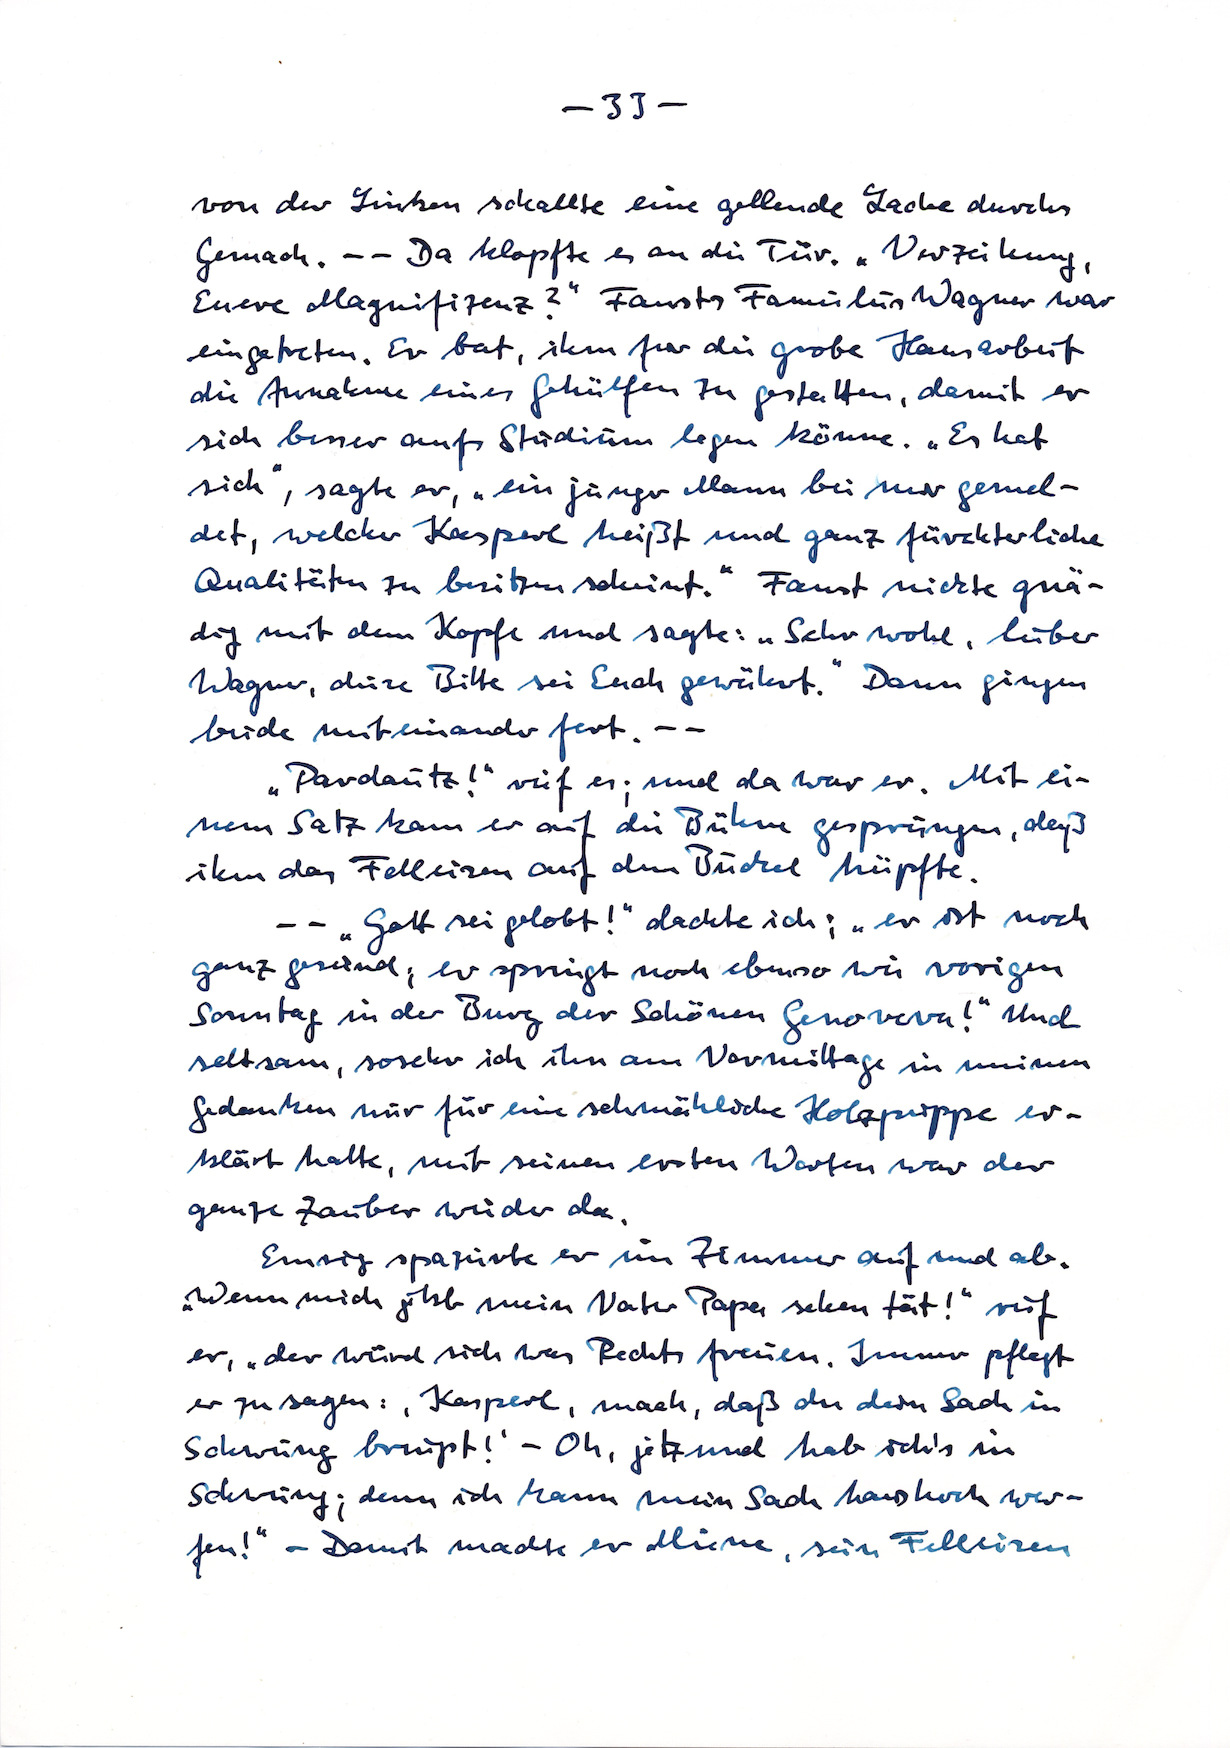 – 33 –
von der Linken schallte eine gellende Lache durchs
Gemach. –– Da klopfte es an die Tür. „Verzeihung,
Euere Magnifizenz?“ Fausts Famulus Wagner war
eingetreten. Er bat, ihm für die grobe Hausarbeit
die Annahme eines Gehülfen zu gestatten, damit er
sich besser aufs Studium legen könne. „Es hat
sich“, sagte er, „ein junger Mann bei mir gemel-
det, welcher Kasperl heißt und ganz fürchterliche
Qualitäten zu besitzen scheint.“ Faust nickte gnä-
dig mit dem Kopfe und sagte: „Sehr wohl, lieber
Wagner, diese Bitte sei Euch gewährt.“ Dann gingen
beide miteinander fort. ––
„Pardautz!“ rief es; und da war er. Mit ei-
nem Satz kam er auf die Bühne gesprungen, daß
ihm das Felleisen auf dem Buckel hüpfte.
–– „Gott sei gelobt!“ dachte ich; „er ist noch
ganz gesund; er springt noch ebenso wie vorigen
Sonntag in der Burg der Schönen Genoveva!“ Und
seltsam, sosehr ich ihn am Vormittage in meinen
Gedanken nur für eine schmähliche Holzpuppe er-
klärt hatte, mit seinen ersten Worten war der
ganze Zauber wieder da.
Emsig spazierte er im Zimmer auf und ab.
„Wenn mich jetzt mein Vater Papa sehen tät!“ rief
er, „der würd sich was Rechts freuen. Immer pflegt
er zu sagen: ‚Kasperl, mach, daß du dein Sach in
Schwung bringst!‘ – Oh, jetzund hab ich's in
Schwung; denn ich kann mein Sach haushoch wer-
fen!“ – Damit machte er Miene, sein Felleisen